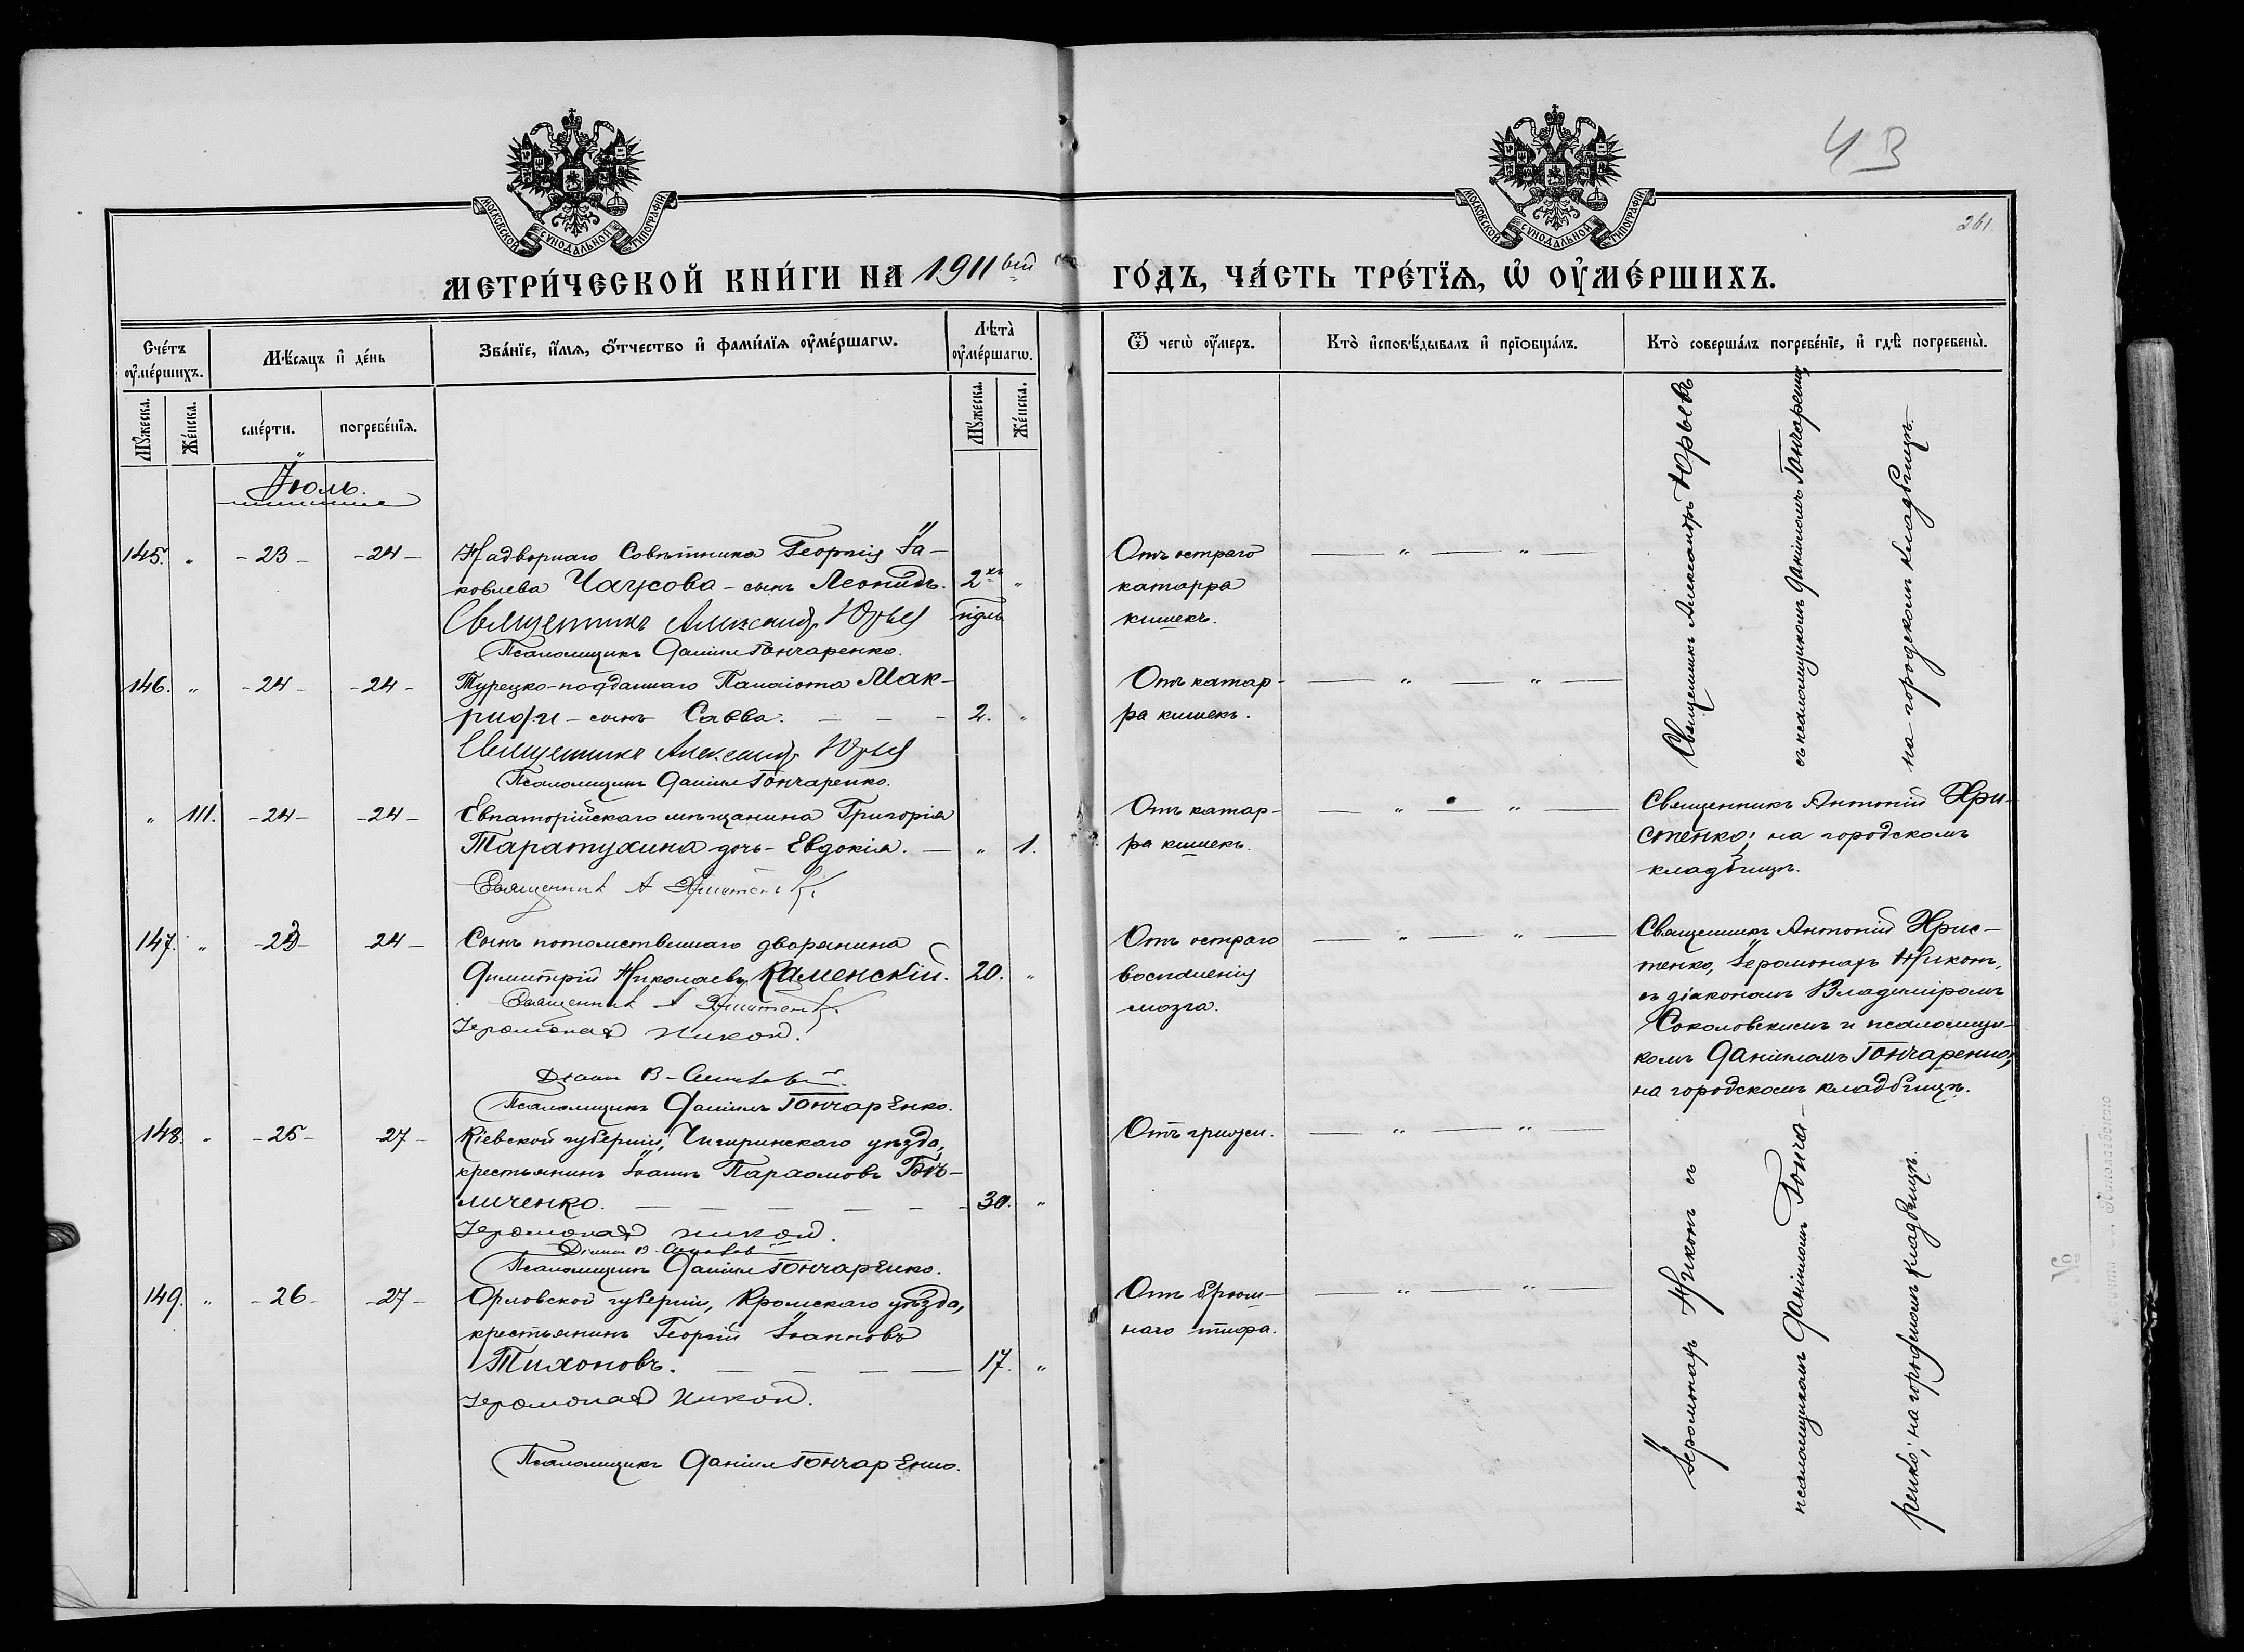 43
261.
МОСКОВСКОЙ СѴНОДАЛЬНОЙ ТИПОГРАФІИ
МОСКОВСКОЙ СѴНОДАЛЬНОЙ ТИПОГРАФІИ
МЕТРИ́ЧЕСКОЙ КНИ́ГИ НА 1911 ый ГО́ДЪ, ЧА́СТЬ ТРЕ́ТЇѦ, Ѡ҆ ОУ҆МЕ́РШИХЪ.
Сче́тъ оу҆ме́ршихъ.
Мѣ́сяцъ и҆ де́нь
Зва́нїе, и҆́мѧ, ѻ҆́тчество и҆ фами́лїѧ оу҆ме́ршагѡ.
Лѣта̀ оу҆ме́ршагѡ.
Ѿ чегѡ̀ оу҆́меръ.
Кто̀ и҆сповѣ́дывалъ и҆ прїѡбща́лъ.
Кто̀ соверша́лъ погребе́нїе, и҆ гдѣ̀ погребены̀.
Мꙋ́жеска.
Же́нска.
сме́рти.
погребе́нїѧ.
Мꙋ́жеска.
Же́нска.
Іюль.
145. " - 23 - - 24 - Надворнаго Совѣтника Георгія Іа-
ковлева Чаусова - сынъ Леонидъ. 2хъ "
Священникъ Александр Юрьев
Псаломщикъ Даніилъ Гончаренко.
Отъ остраго
катарра
кишекъ.
— " — " —
Священникъ Александръ Юрьевъ
съ псаломщикомъ Даніиломъ Гончаренко,
на городскомъ кладбищѣ.
146. " - 24 - - 24 - Турецко-подданнаго Панаіота Мак-
рифи - сынъ Савва. — — - 2. "
Священникъ Александр Юрьев
Псаломщикъ Даніилъ Гончаренко.
Отъ катар-
ра кишекъ.
— " — " —
" 111. - 24 - - 24 - Евпаторійскаго мѣщанина Григорія
Таратухина дочь - Евдокія. — " 1.
Священникъ А Христенко
Отъ катар-
ра кишекъ.
— " — " —
Священникъ Антоній Хри-
стенко; на городскомъ
кладбищѣ.
147. " - 23 - 24 - Сынъ потомственнаго дворянина
Димитрій Николаевъ Каменскій. 20. "
Священникъ А Христенко
Іеромонах Никон.
Псаломщикъ Даніилъ Гончаренко.
Отъ остраго
воспаленія
мозга.
— " — " —
Священникъ Антоній Хрис-
тенко, Іеромонахъ Никонъ,
съ діакономъ Владиміромъ
Соколовскимъ и псаломщи-
комъ Даніиломъ Гончаренко;
на городскомъ кладбищѣ.
148. " - 25 - 27 - Кіевской губерніи, Чигиринскаго уѣзда,
крестьянинъ Іоаннъ Пархомовъ Бѣ-
личенко. — — — — — - 30. "
Іеромонах Никон.
Псаломщикъ Даніилъ Гончаренко.
Отъ грыжи.
— " — " —
Іеромонахъ Никонъ съ
псаломщикомъ Даніиломъ Гонча-
ренко; на городскомъ кладбищѣ.
149. " - 26 - - 27 - Орловской губерніи, Кромскаго уѣзда,
крестьянинъ Георгій Іоанновъ
Тихоновъ. — — — — 17. "
Іеромонах Никон.
Псаломщикъ Даніилъ Гончаренко.
Отъ брюш-
наго тифа.
— " — " —
№